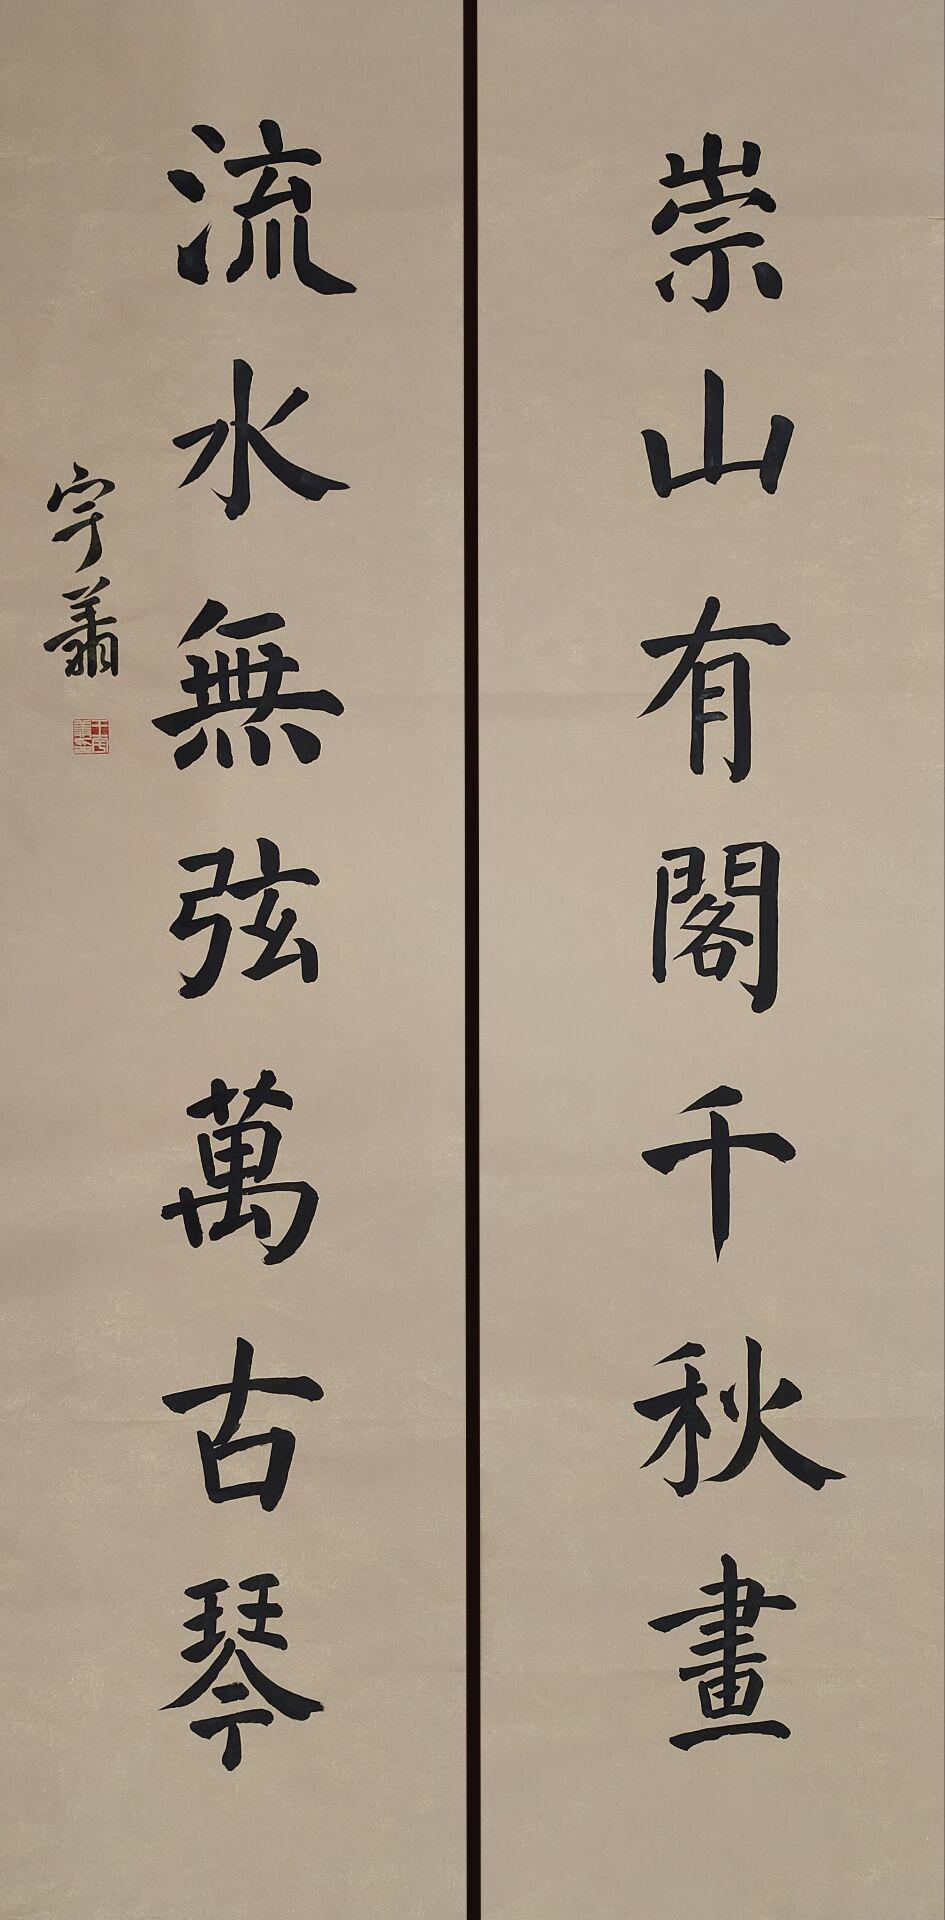 崇山有閣千秋畫
流水無弦萬古琴
宇